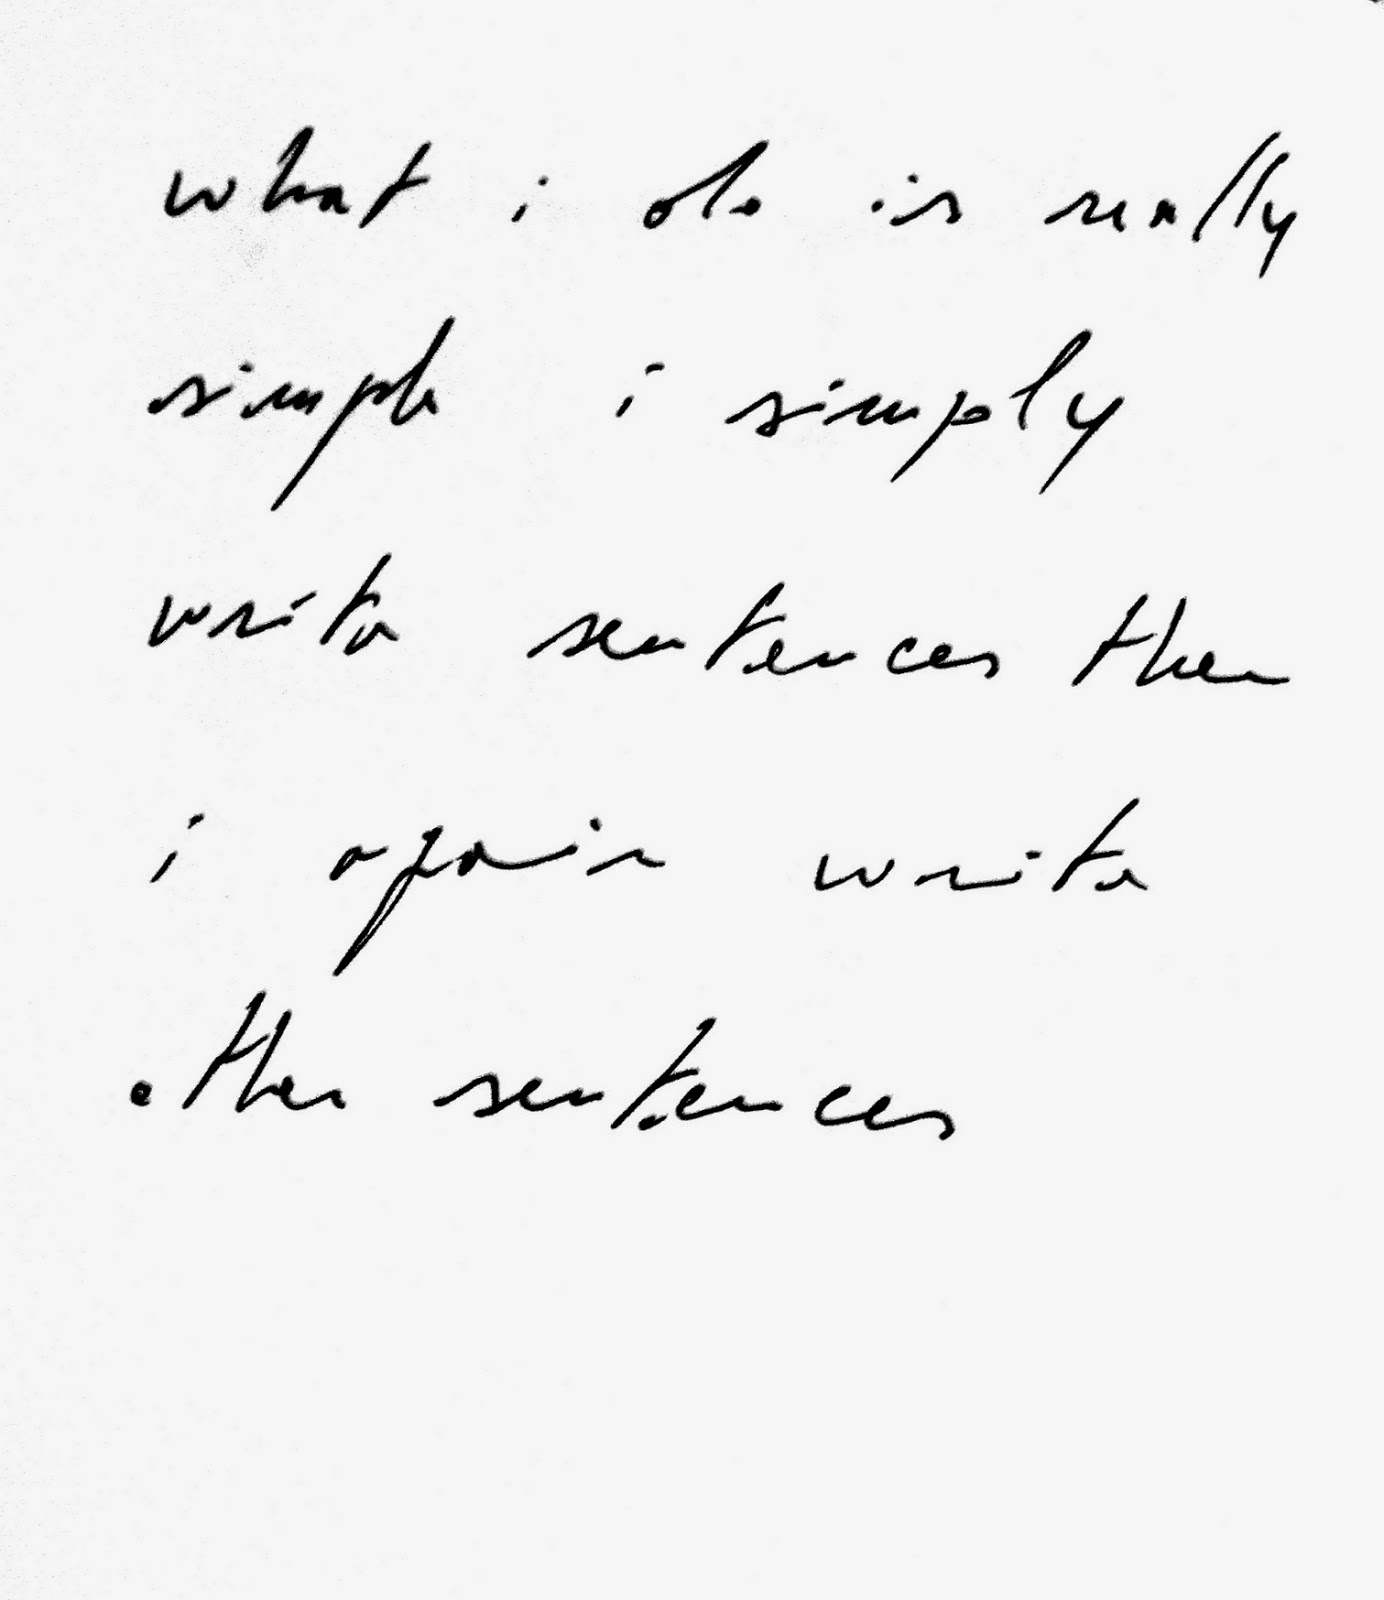 what i do is really
simple i simply
write sentences then
i again write
other sentences